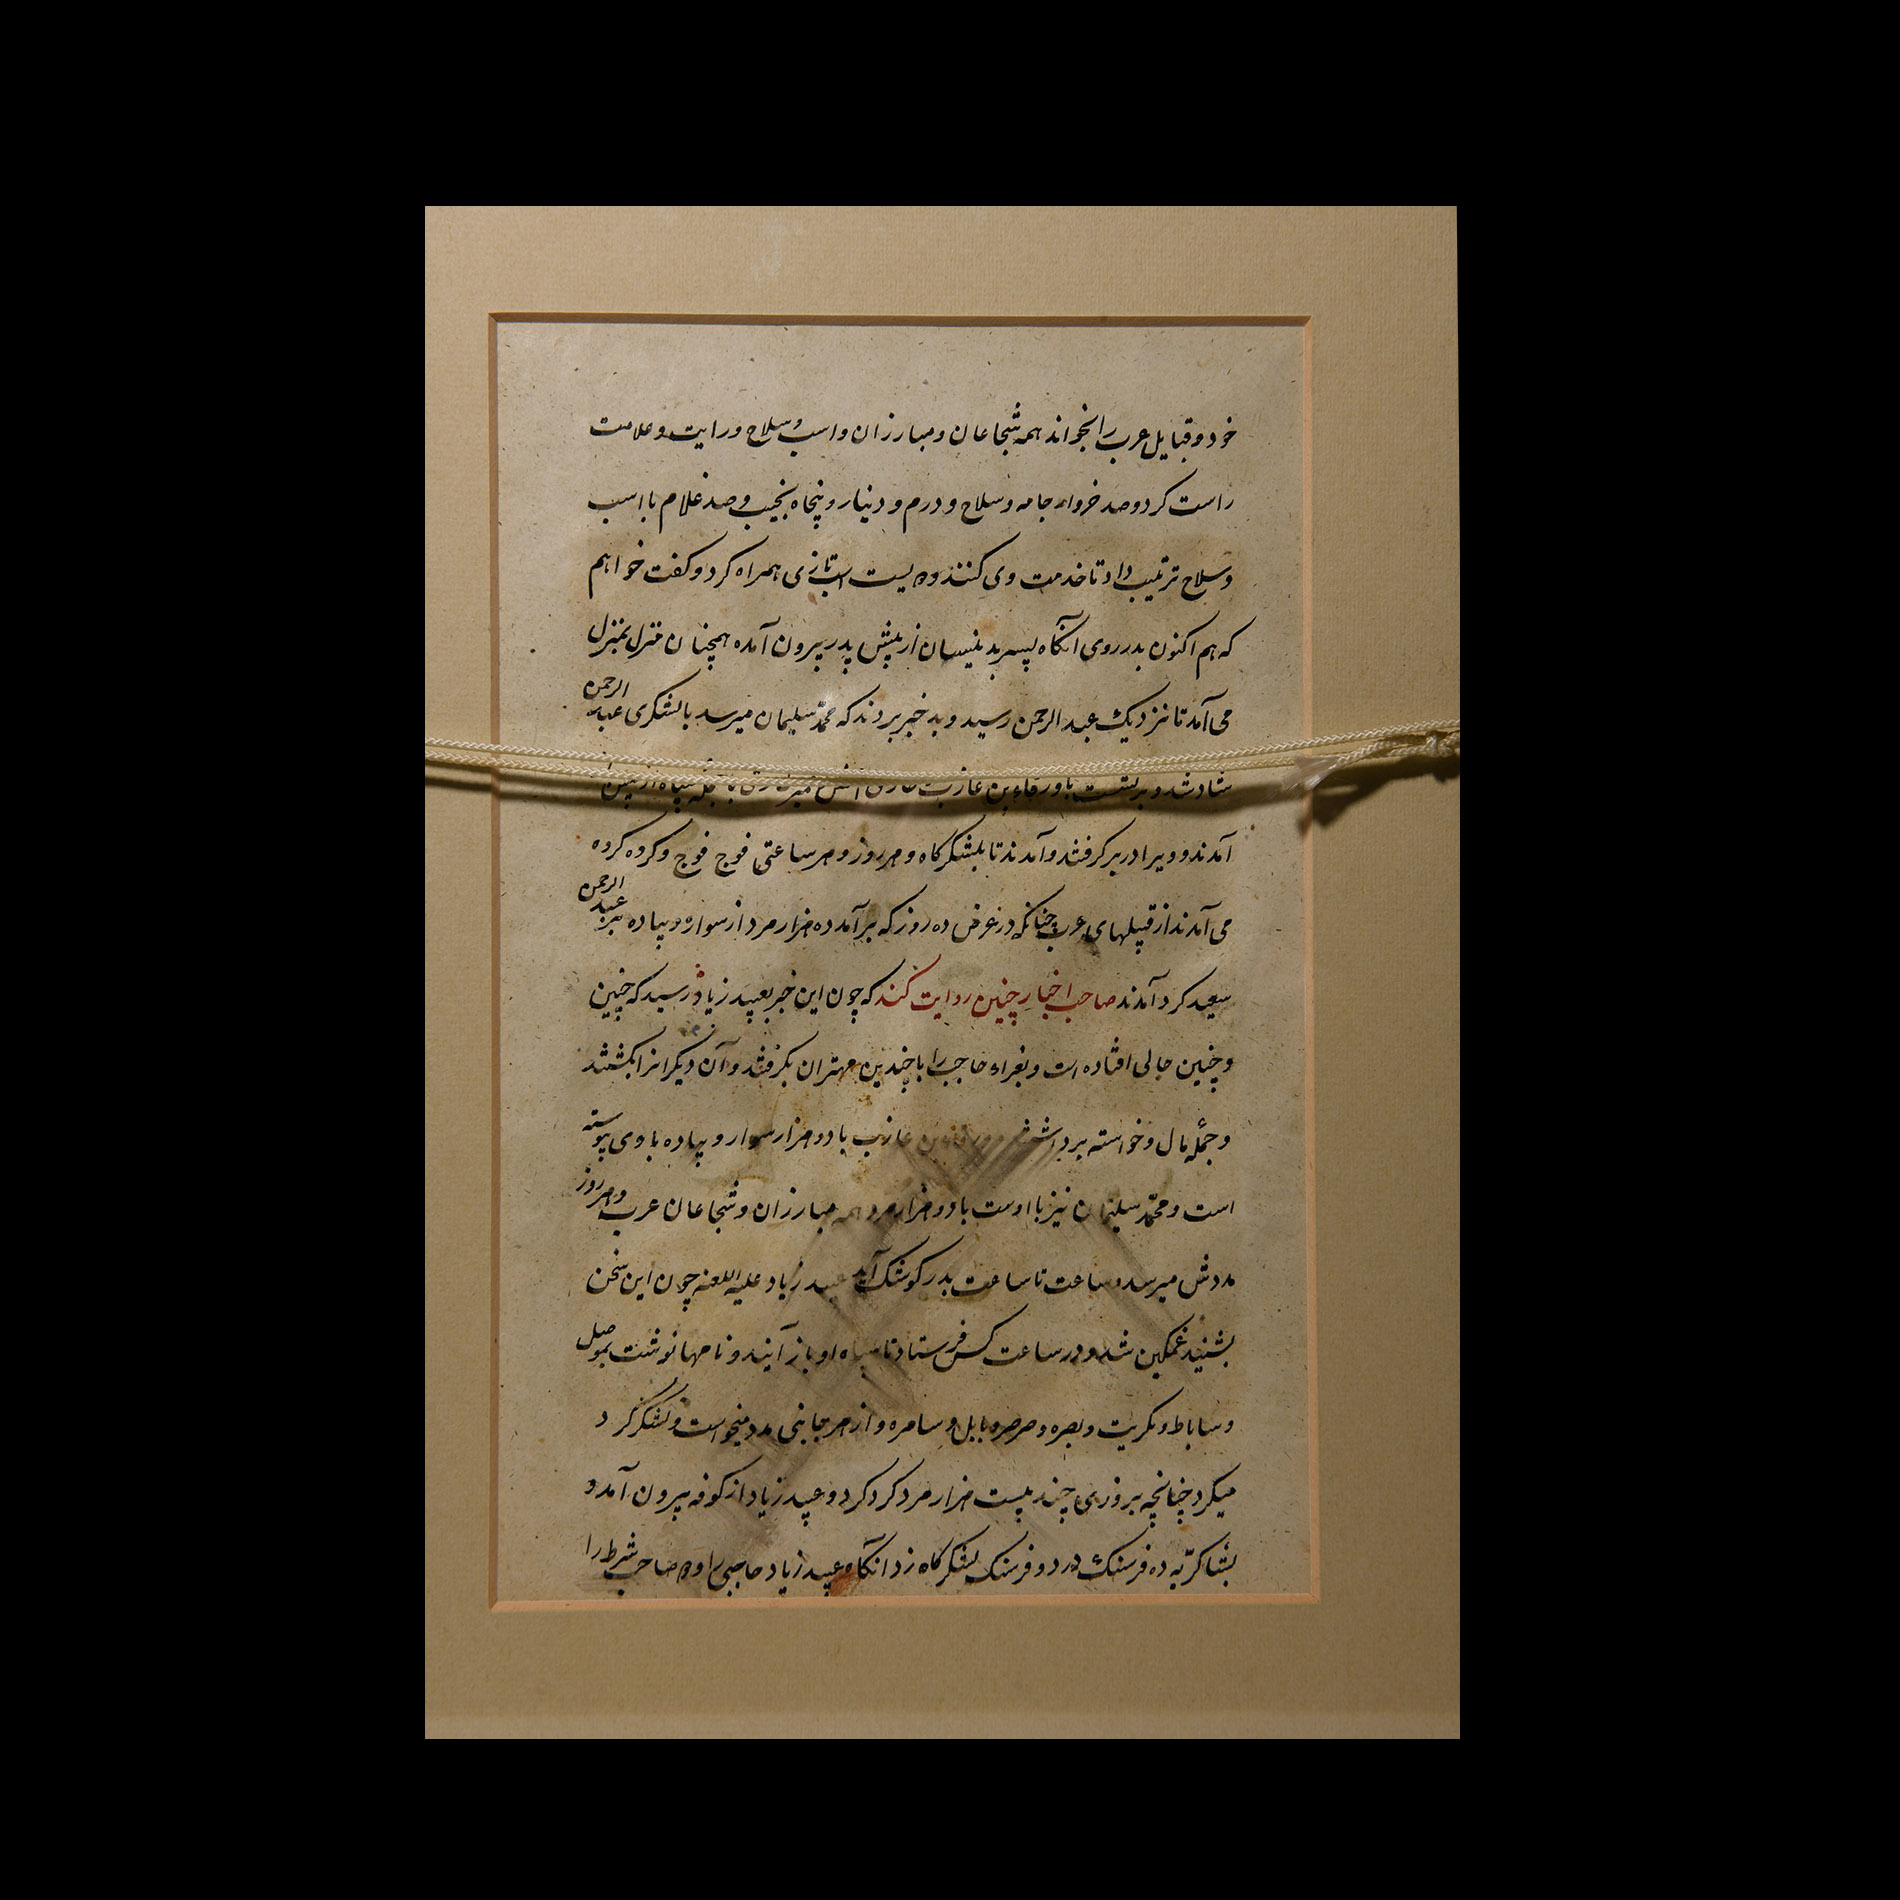 خود و قبایل عرب را بخواند همه شجاعان و مبارزان و اسب و سلاح و رایت و علامت
راست کرد و صد خروار جامه و سلاح و درم و دینار و پنجاه نجیب و صد غلام با اسب
و سلاح ترتیب داد تا خدمت وی کنند و دویست اسب تازی همراه کرد و کفت خواهم
که هم اکنون بدر روی آنکاه پسر بدینسان از پیش پدر بیرون آمده همچنان منزل بمنزل
می آمد تا نزدیک عبد الرحمن رسید و بد خبر بردند که محمد سلیمان میرسد با لشکری عبد الرحمن
شاد شد و برنشست با ورقاء بن عازب
آمدند و ویرا در بر کرفتند و آمدند تا بلشکرکاه و هر روز و هر ساعتی فوج فوج و کرده کرده
می آمدند از قبیلهای عرب چنانکه در عرض ده روز که برآمد ده هزار مرد از سواره و پیاده بر عبد الرحمن
سعید کرد آمدند صاحب اخبار چنین روایت کند که چون این خبر بعبید زیاد رسید که چنین
و چنین حالی افتاده است و بغراء حاجب را با چندین مهتران بکرفتند و آن دیکرانرا بکشتند
و جمله مال و خواسته برداشتند و ورقاء بن عازب با دو هزار سوار و پیاده با وی پیوسته
است و محمد سلیمان نیز با اوست با دو هزار مرد همه مبارزان و شجاعان عرب و هر روز
مددش میرسد و ساعت تا ساعت بدر کوشک آید عبید زیاد علیه اللعنه چون این سخن
بشنید غمکین شد و در ساعت کس فرستاد تا سپاه او باز آیند و نامها نوشت بموصل
و ساباط و تکریت و بصره و صرصر و بابل و سامره و از هر جانبی مدد میخواست و لشکر کرد
میکرد چنانچه بروزی چند بیست هزار مرد کرد کرد و عبید زیاد از کوفه بیرون آمد و
بشاکریه ده فرسنک در دو فرسنک لشکرکاه زد آنکاه عبید زیاد حاجبی را و صاحب شرط را